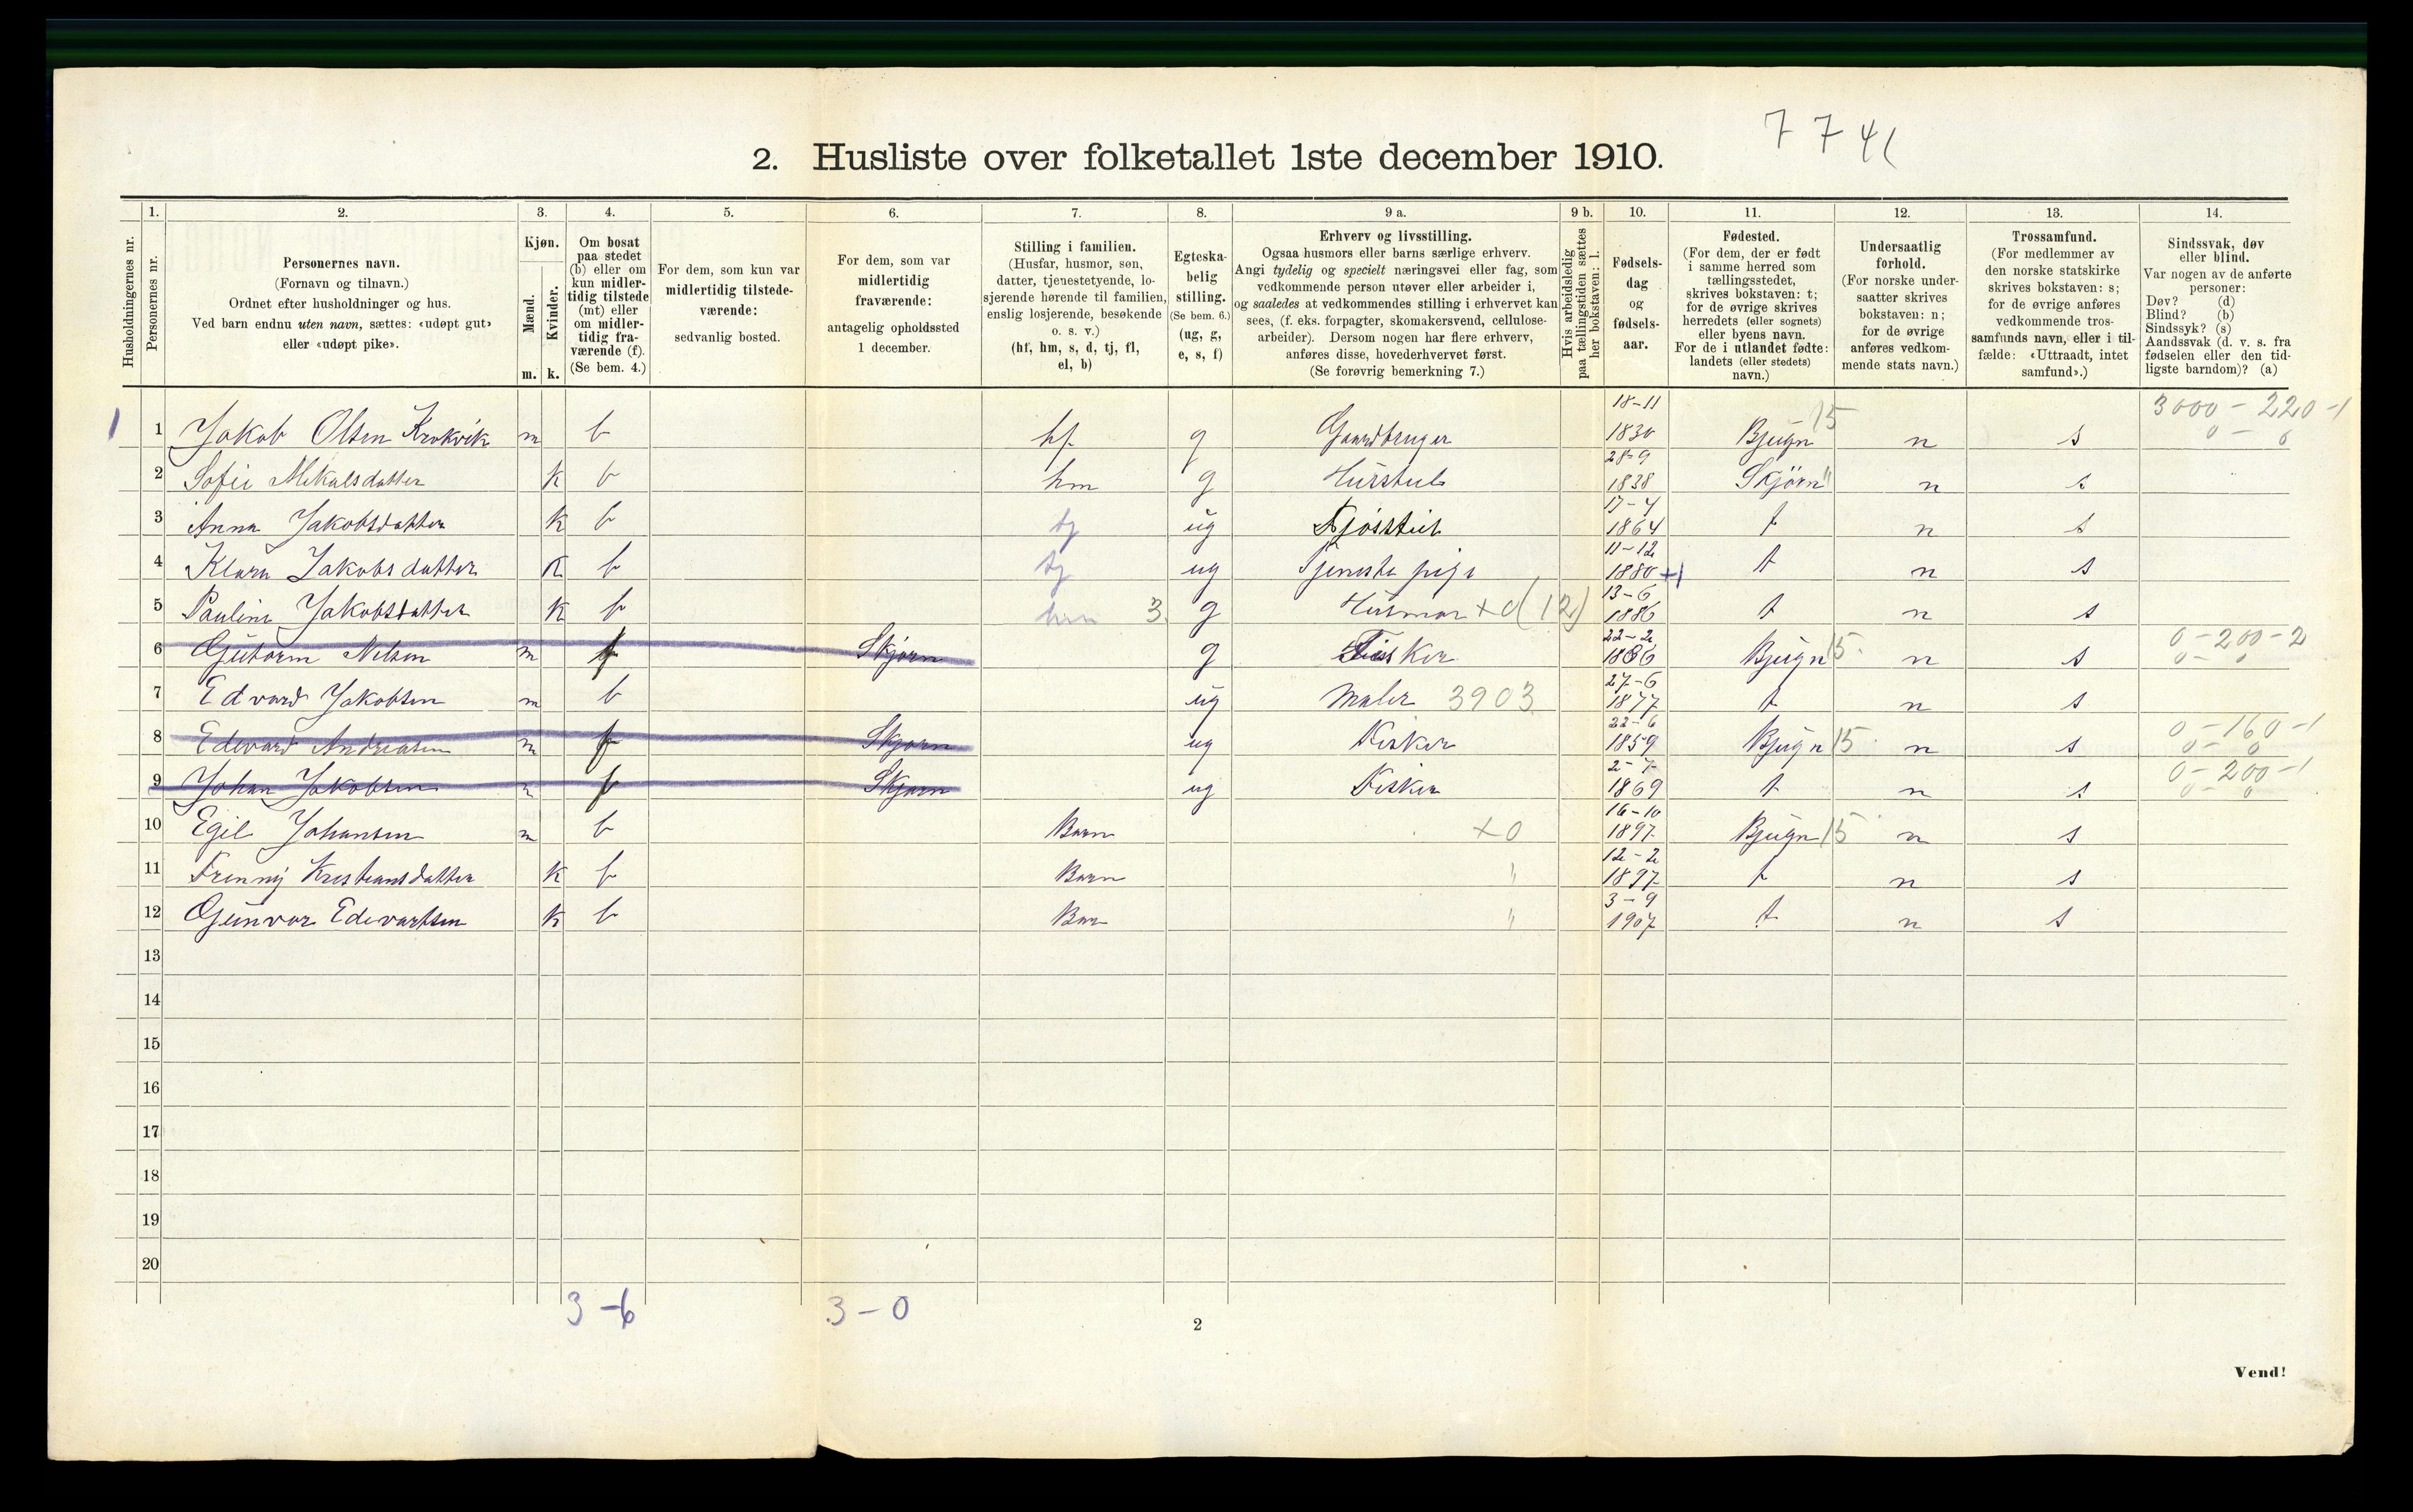 7 7 41
2. Husliste over folketallet 1ste december 1910.
1. 2. 3. 4. 5. 6. 7. 8. 9 a. 9 b. 10. 11. 12. 13. 14.
Husholdningernes nr.
Personernes nr.
Personernes navn.
(Fornavn og tilnavn.)
Ordnet efter husholdninger og hus.
Ved barn endnu uten navn, sættes: «udøpt gut»
eller «udøpt pike».
Kjøn.
Mænd.
Kvinder.
m. k.
Om bosat
paa stedet
(b) eller om
kun midler-
tidig tilstede
(mt) eller
om midler-
tidig fra-
værende (f).
(Se bem. 4.)
For dem, som kun var
midlertidig tilstede-
værende:
sedvanlig bosted.
For dem, som var
midlertidig
fraværende:
antagelig opholdssted
1 december.
Stilling i familien.
(Husfar, husmor, søn,
datter, tjenestetyende, lo-
sjerende hørende til familien,
enslig losjerende, besøkende
o. s. v.)
(hf, hm, s, d, tj, fl,
el, b)
Egteska-
belig
stilling.
(Se bem. 6.)
(ug, g,
e, s, f)
Erhverv og livsstilling.
Ogsaa husmors eller barns særlige erhverv.
Angi tydelig og specielt næringsvei eller fag, som
vedkommende person utøver eller arbeider i,
og saaledes at vedkommendes stilling i erhvervet kan
sees, (f. eks. forpagter, skomakersvend, cellulose-
arbeider). Dersom nogen har flere erhverv,
anføres disse, hovederhvervet først.
(Se forøvrig bemerkning 7.)
Hvis arbeidsledig
paa tællingstiden sættes
her bokstaven: l.
Fødsels-
dag
og
fødsels-
aar.
Fødested.
(For dem, der er født
i samme herred som
tællingsstedet,
skrives bokstaven: t;
for de øvrige skrives
herredets (eller sognets)
eller byens navn.
For de i utlandet fødte:
landets (eller stedets)
navn.)
Undersaatlig
forhold.
(For norske under-
saatter skrives
bokstaven: n;
for de øvrige
anføres vedkom-
mende stats navn.)
Trossamfund.
(For medlemmer av
den norske statskirke
skrives bokstaven: s;
for de øvrige anføres
vedkommende tros-
samfunds navn, eller i til-
fælde: «Uttraadt, intet
samfund».)
Sindssvak, døv
eller blind.
Var nogen av de anførte
personer:
Døv? (d)
Blind? (b)
Sindssyk? (s)
Aandssvak (d. v. s. fra
fødselen eller den tid-
ligste barndom)? (a)
1 1 Jakob Olsen Krokvik m b hf g Gaardbruger 18-11 1830 Bjugn 15 n s 3000-220-1 0-0
2 Sofie Mikalsdatter k b hm g Husstel 28-9 1838 Skjörn " n s
3 Anna Jakobsdatter k b tj ug Fjösstel 17-4 1864 t n s
4 Klara Jakobsdatter k b tj ug Tjeneste pige 11-12 1880 +1 t n s
5 Pauline Jakobsdatter k b hm 3 g Husmor +d(12) 13-6 1886 t n s
6 Gutorm Nelsen m f Skjörn g Fisker 22-2 1886 Bjugn 15 n s 0-200-2 0-0
7 Edvard Jakobsen m b ug Maler 3903 27-6 1877 t n s
8 Edevard Andreasen m f Skjörn ug Fisker 22-6 1859 Bjugn 15 n s 0-160-1 0-0
9 Johan Jakobsen m f Skjörn ug Fisker 2-7 1869 t n s 0-200-1 0-0
10 Egil Johansen m b Barn +0 16-10 1897 Bjugn 15 n s
11 Frenny Kristiansdatter k b Barn " 12-2 1897 t n s
12 Gunvor Edevartsen k b Barn " 3-9 1907 t n s
13
14
15
16
17
18
19
20
3-6 3-0
2
Vend!